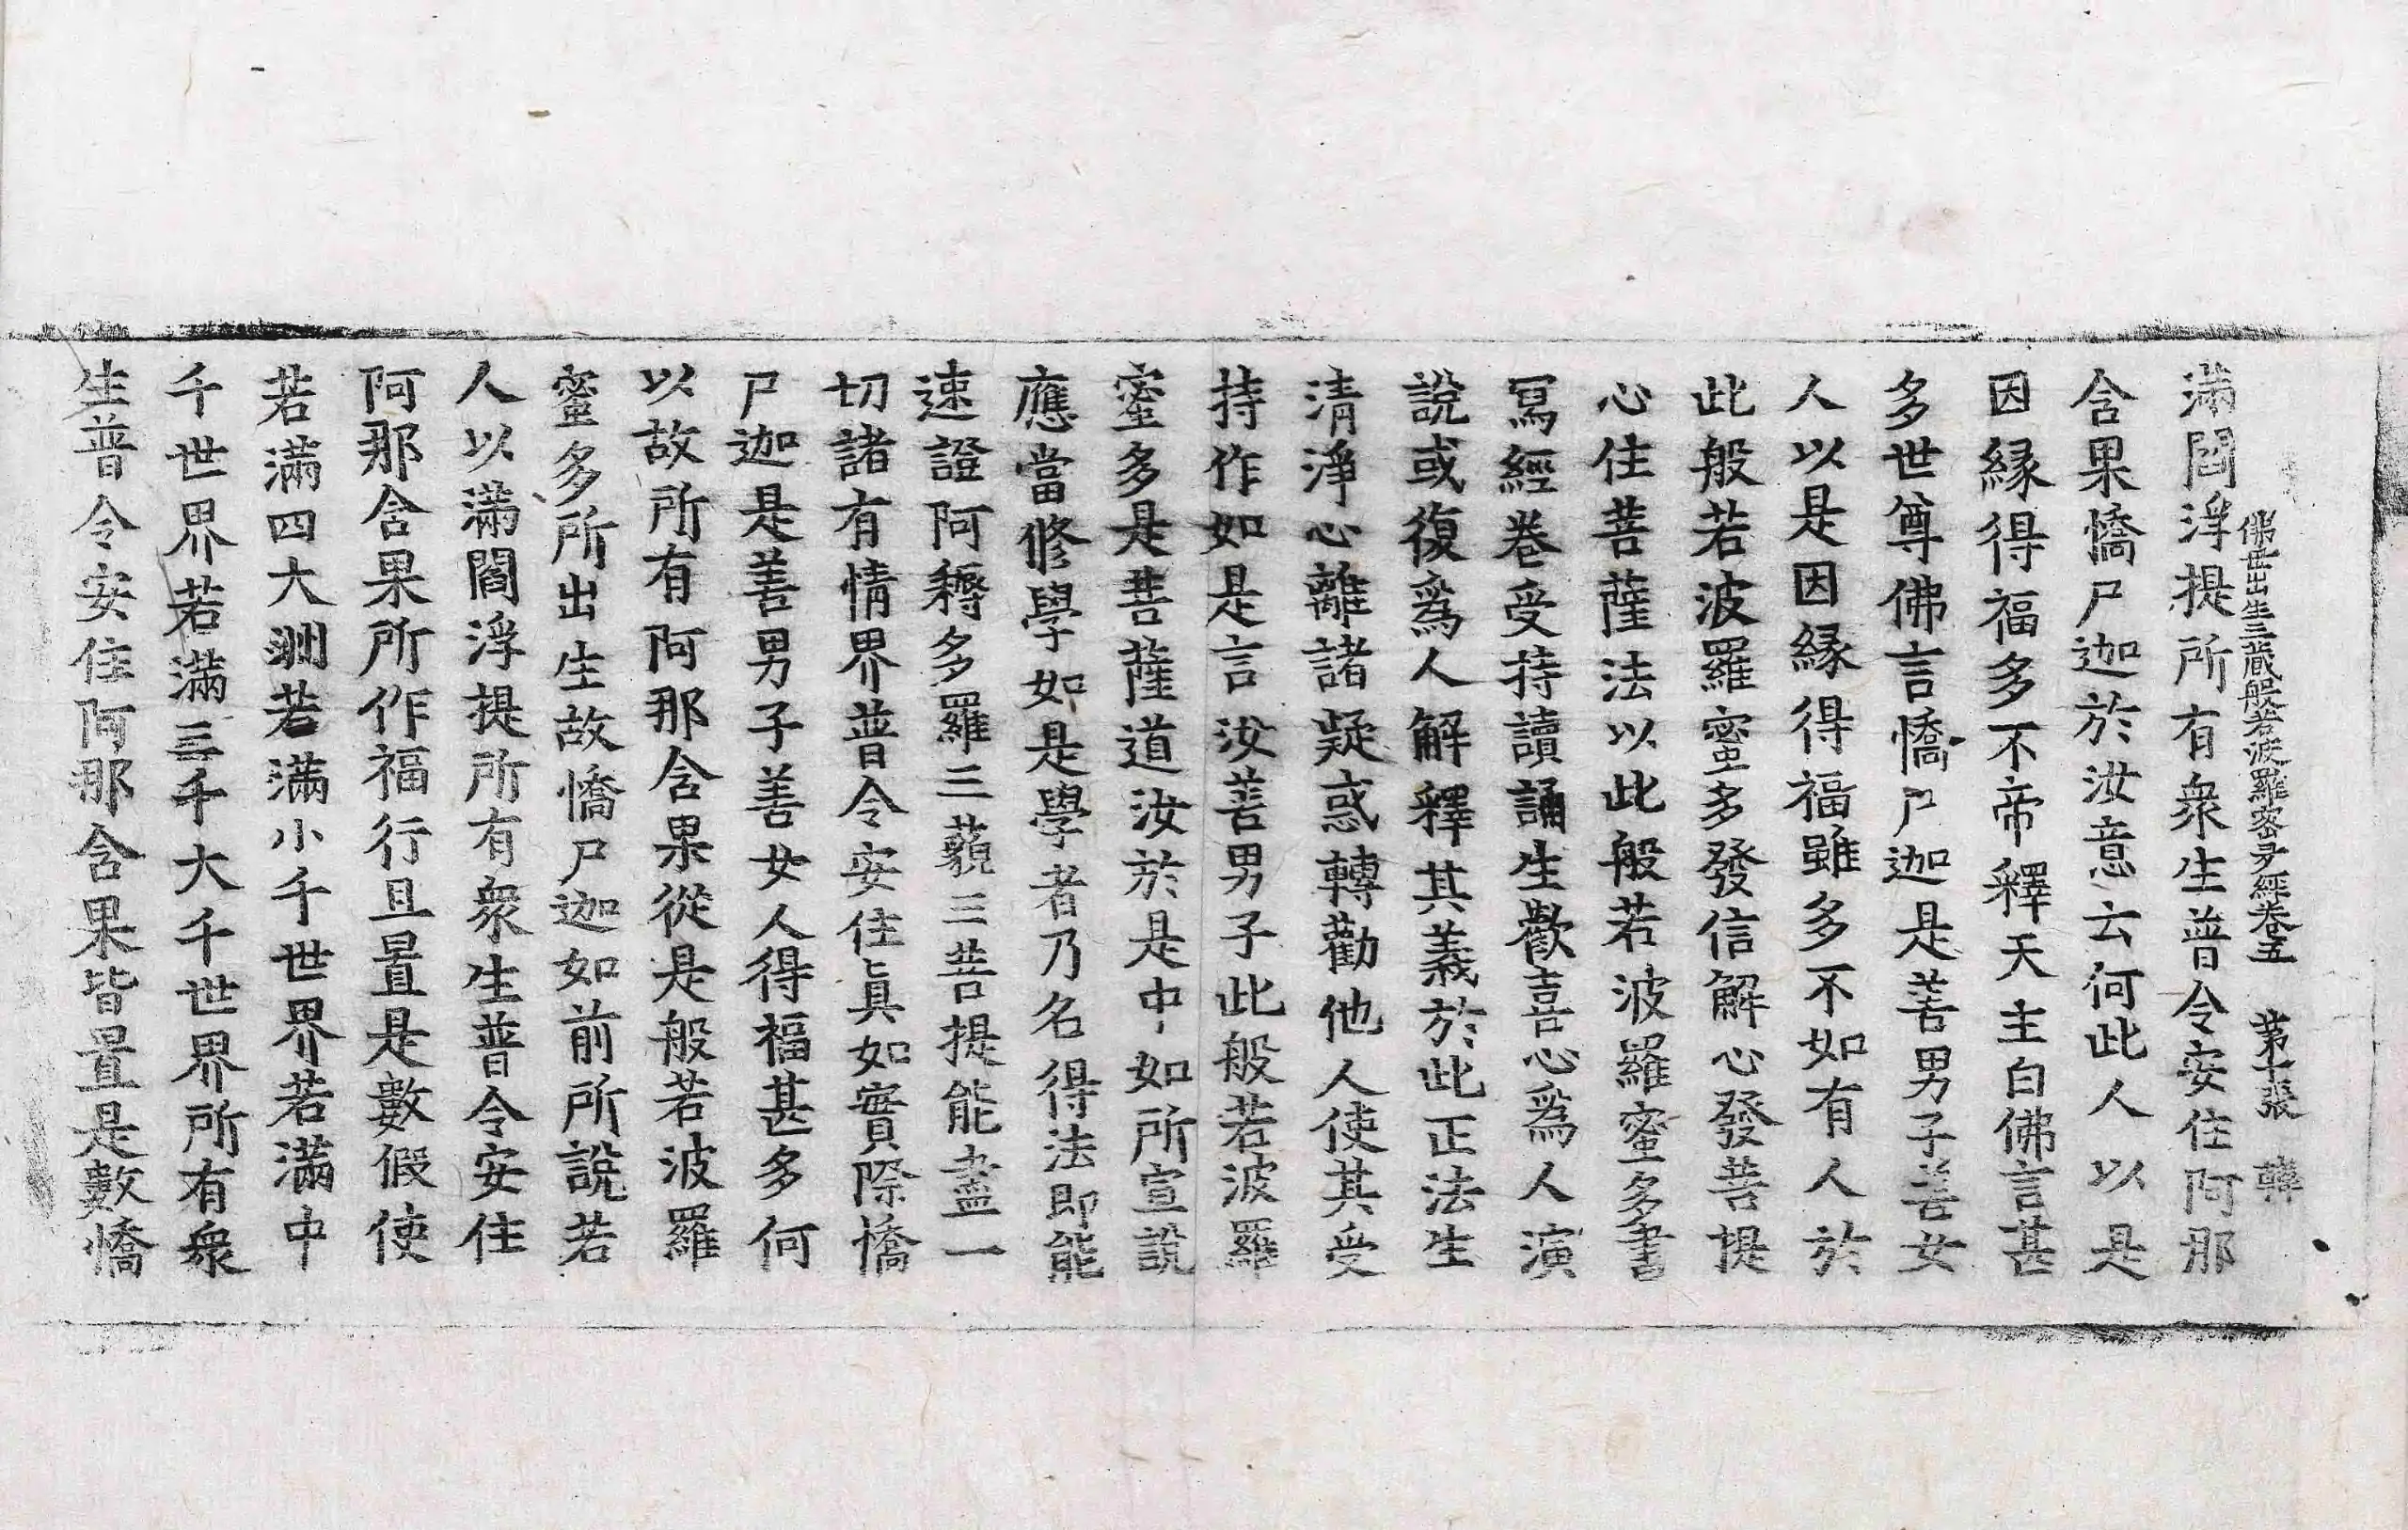 佛世出生三藏般若波羅蜜多經卷五　第十張　轉
滿閻浮提所有衆生普令安住阿那
含果憍尸迦於汝意云何此人以是
因縁得福多不帝釋天主白佛言甚
多世尊佛言憍尸迦是善男子善女
人以是因縁得福雖多不如有人於
此般若波羅蜜多發信解心發菩提
心住菩薩法以此般若波羅蜜多書
寫經卷受持讀誦生歡喜心爲人演
說或復爲人解釋其義於此正法生
清淨心離諸疑惑轉勸他人使其受
持作如是言汝善男子此般若波羅
蜜多是菩薩道汝於是中如所宣說
應當修學如是學者乃名得法即能
速證阿耨多羅三藐三菩提能盡一
切諸有情界普令安住眞如實際憍
尸迦是善男子善女人得福甚多何
以故所有阿那含果從是般若波羅
蜜多所出生故憍尸迦如前所說若
人以滿閻浮提所有衆生普令安住
阿那含果所作福行且置是數假使
若滿四大洲若滿小千世界若滿中
千世界若滿三千大千世界所有衆
生普令安住阿那含果皆置是數憍